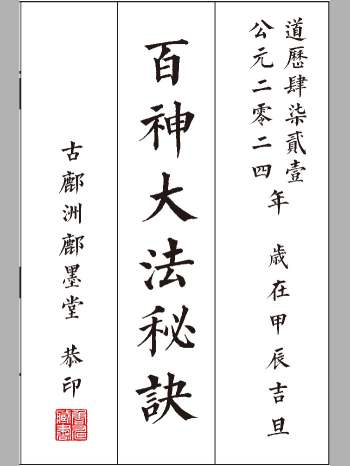 道曆肆柒貳壹
公元二零二四年 歲在甲辰吉旦
百神大法秘訣
古鄜洲鄜墨堂 恭印